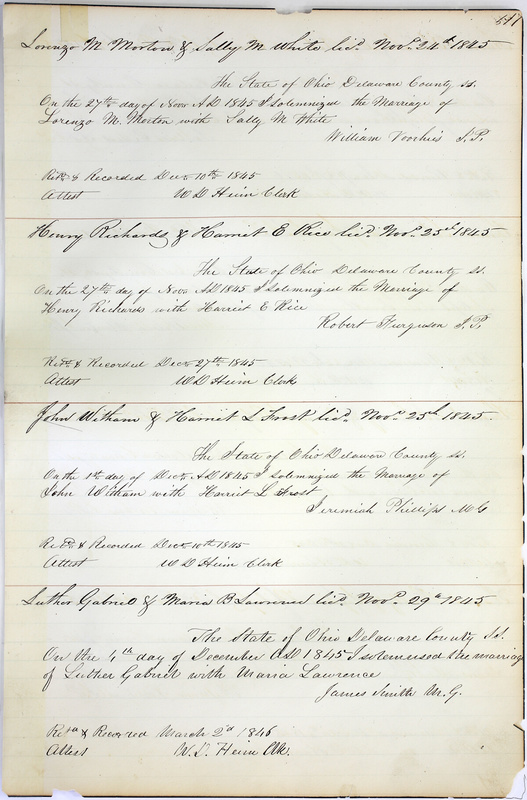 Lorenzo M Morton & Sally M White licd Novr 24th 1845
The State of Ohio Delaware County ss.
On the 27th day of Novr AD 1845 I solemnized the Marriage of
Lorenzo M. Morton with Sally M White
William Voorhis J.P.
Retd & Recorded Decr 10th 1845
Attest W D Heim Clerk
Henry Richards & Harriet E Rice licd Novr 25th 1845
The State of Ohio Delaware County ss.
On the 27th day of Novr AD 1845 I solemnized the Marriage of
Henry Richards with Harriet E Rice
Robert Furguson J.P.
Retd & Recorded Decr 27th 1845
Attest W D Heim Clerk
John Witham & Harriet L Frost licd Novr 25th 1845.
The State of Ohio Delaware County ss.
On the 1st day of Decr AD 1845 I solemnized the Marriage of
John Witham with Harriet L Frost
Jeremiah Phillips M G
Retd & Recorded Decr 10th 1845
Attest W D Heim Clerk
Luther Gabriel & Maria B Lawrence licd Novr 29th 1845
The State of Ohio Delaware County SS.
On the 4th day of December AD 1845 I solemnised the marriag
of Luther Gabriel with Maria Lawrence
James Smith M.G.
Retd & Recorded March 2d 1846
Attest W. D. Heim Clk.